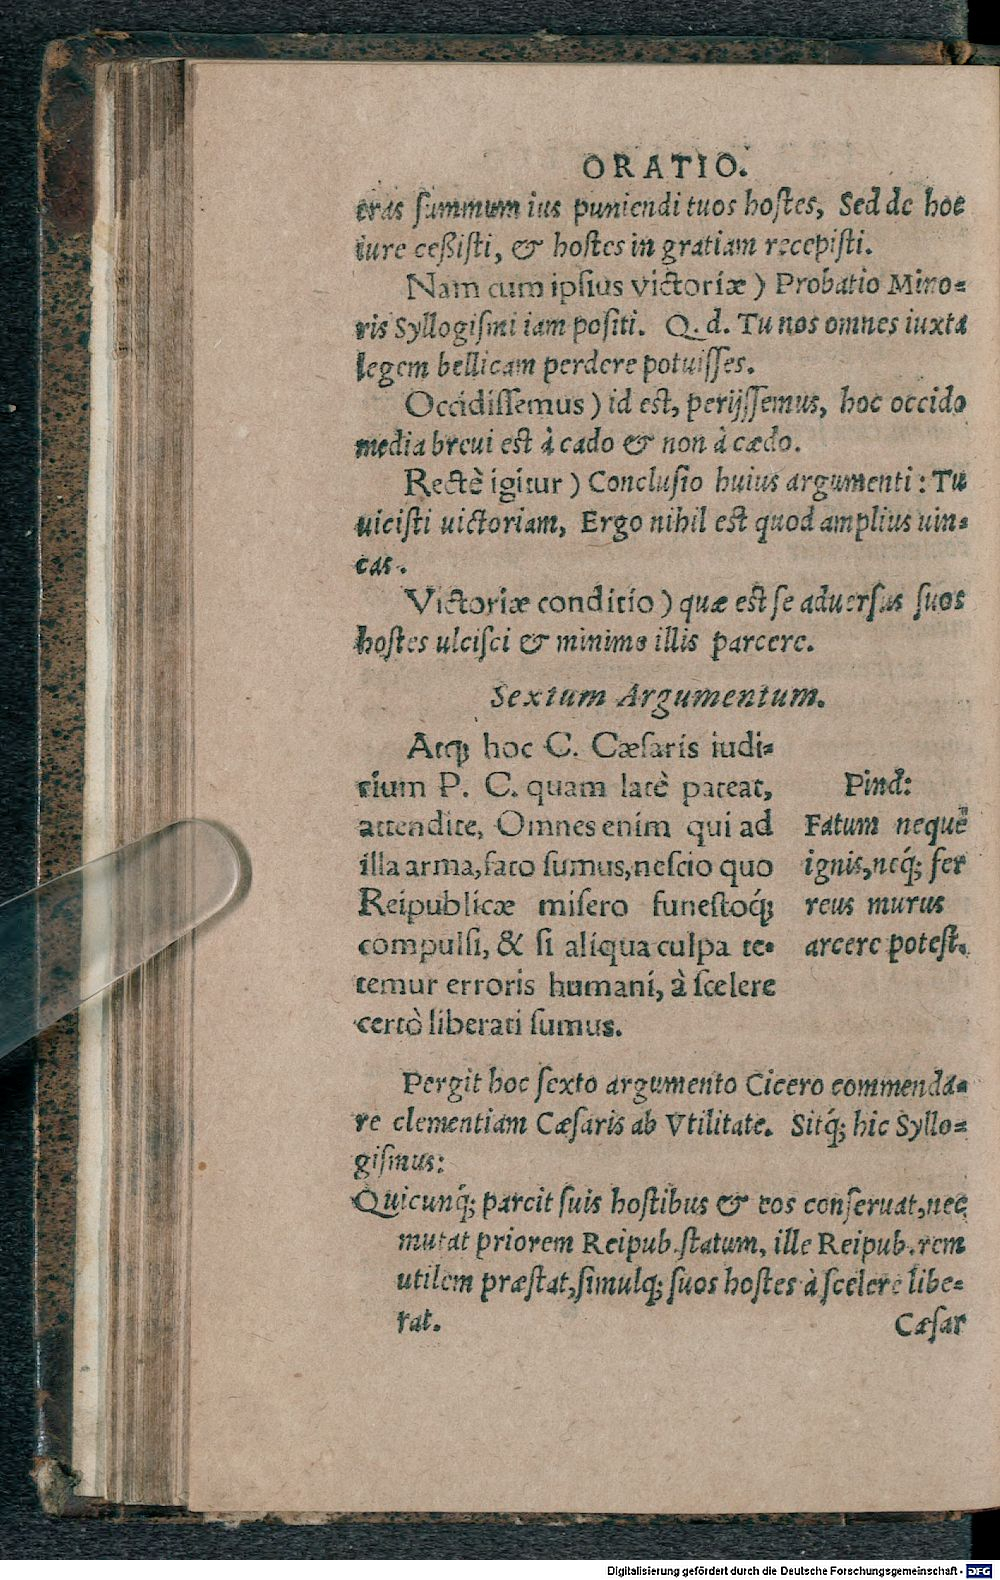 ORATIO.
eras ſummum ius puniendi tuos hoſtes, Sed de hoc
iure ceßiſti, & hoſtes in gratiam recepiſti.
Nam cum ipſius victoriæ) Probatio Mino=
ris Syllogiſmi iam poſiti. Q. d. Tu nos omnes iuxta
legem bellicam perdere potuiſſes.
Occidiſſemus) id est, perijſſemus, hoc occido
media breui est à cado & non à cædo.
Rectè igitur) Concluſio huius argumenti: Tu
uiciſti uictoriam, Ergo nihil est quod amplius uin=
cas.
Victoriæ conditio) quæ est ſe aduerſus ſuos
hoſtes ulciſci & minime illis parcere.
Sextum Argumentum.
Atq; hoc C. Cæſaris iudi=
tium P. C. quam latè pateat,
attendite, Omnes enim qui ad
illa arma, fato ſumus, neſcio quo
Reipublicæ miſero funeſtoq́;
compulſi, & ſi aliqua culpa te=
temur erroris humani, à ſcelere
certò liberati ſumus.
Pind:
Fatum neque
ignis, neq́; fer
reus murus
arcere poteſt.
Pergit hoc ſexto argumento Cicero commenda=
re clementiam Cæſaris ab Vtilitate. Sitq́; hic Syllo=
giſmus:
Quicunq́; parcit ſuis hoſtibus & eos conſeruat, nec
mutat priorem Reipub. ſtatum, ille Reipub. rem
utilem præſtat, ſimulq; ſuos hoſtes à ſcelere libe=
rat.
Cæſar
Digitalisierung gefördert durch die Deutsche Forschungsgemeinschaft - DFG